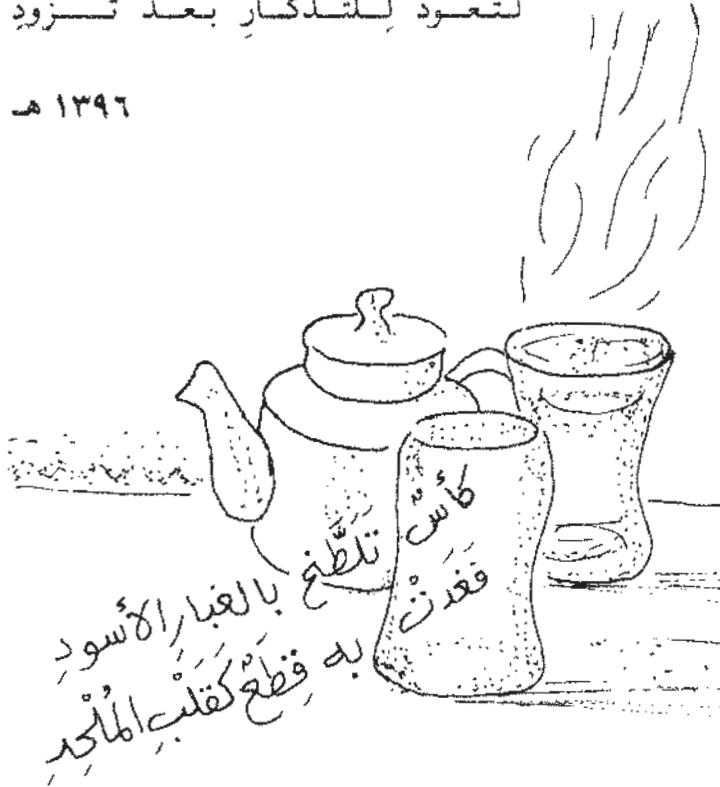 لتعود لِلتذكارِ بعد تزودِ
١٣٩٦ هـ
كأسٌ تَلَطَّخَ بالغبارِ الأسودِ
فَغَدَتْ به قِطَعٌ كَقَلْبِ المُلْحِدِ